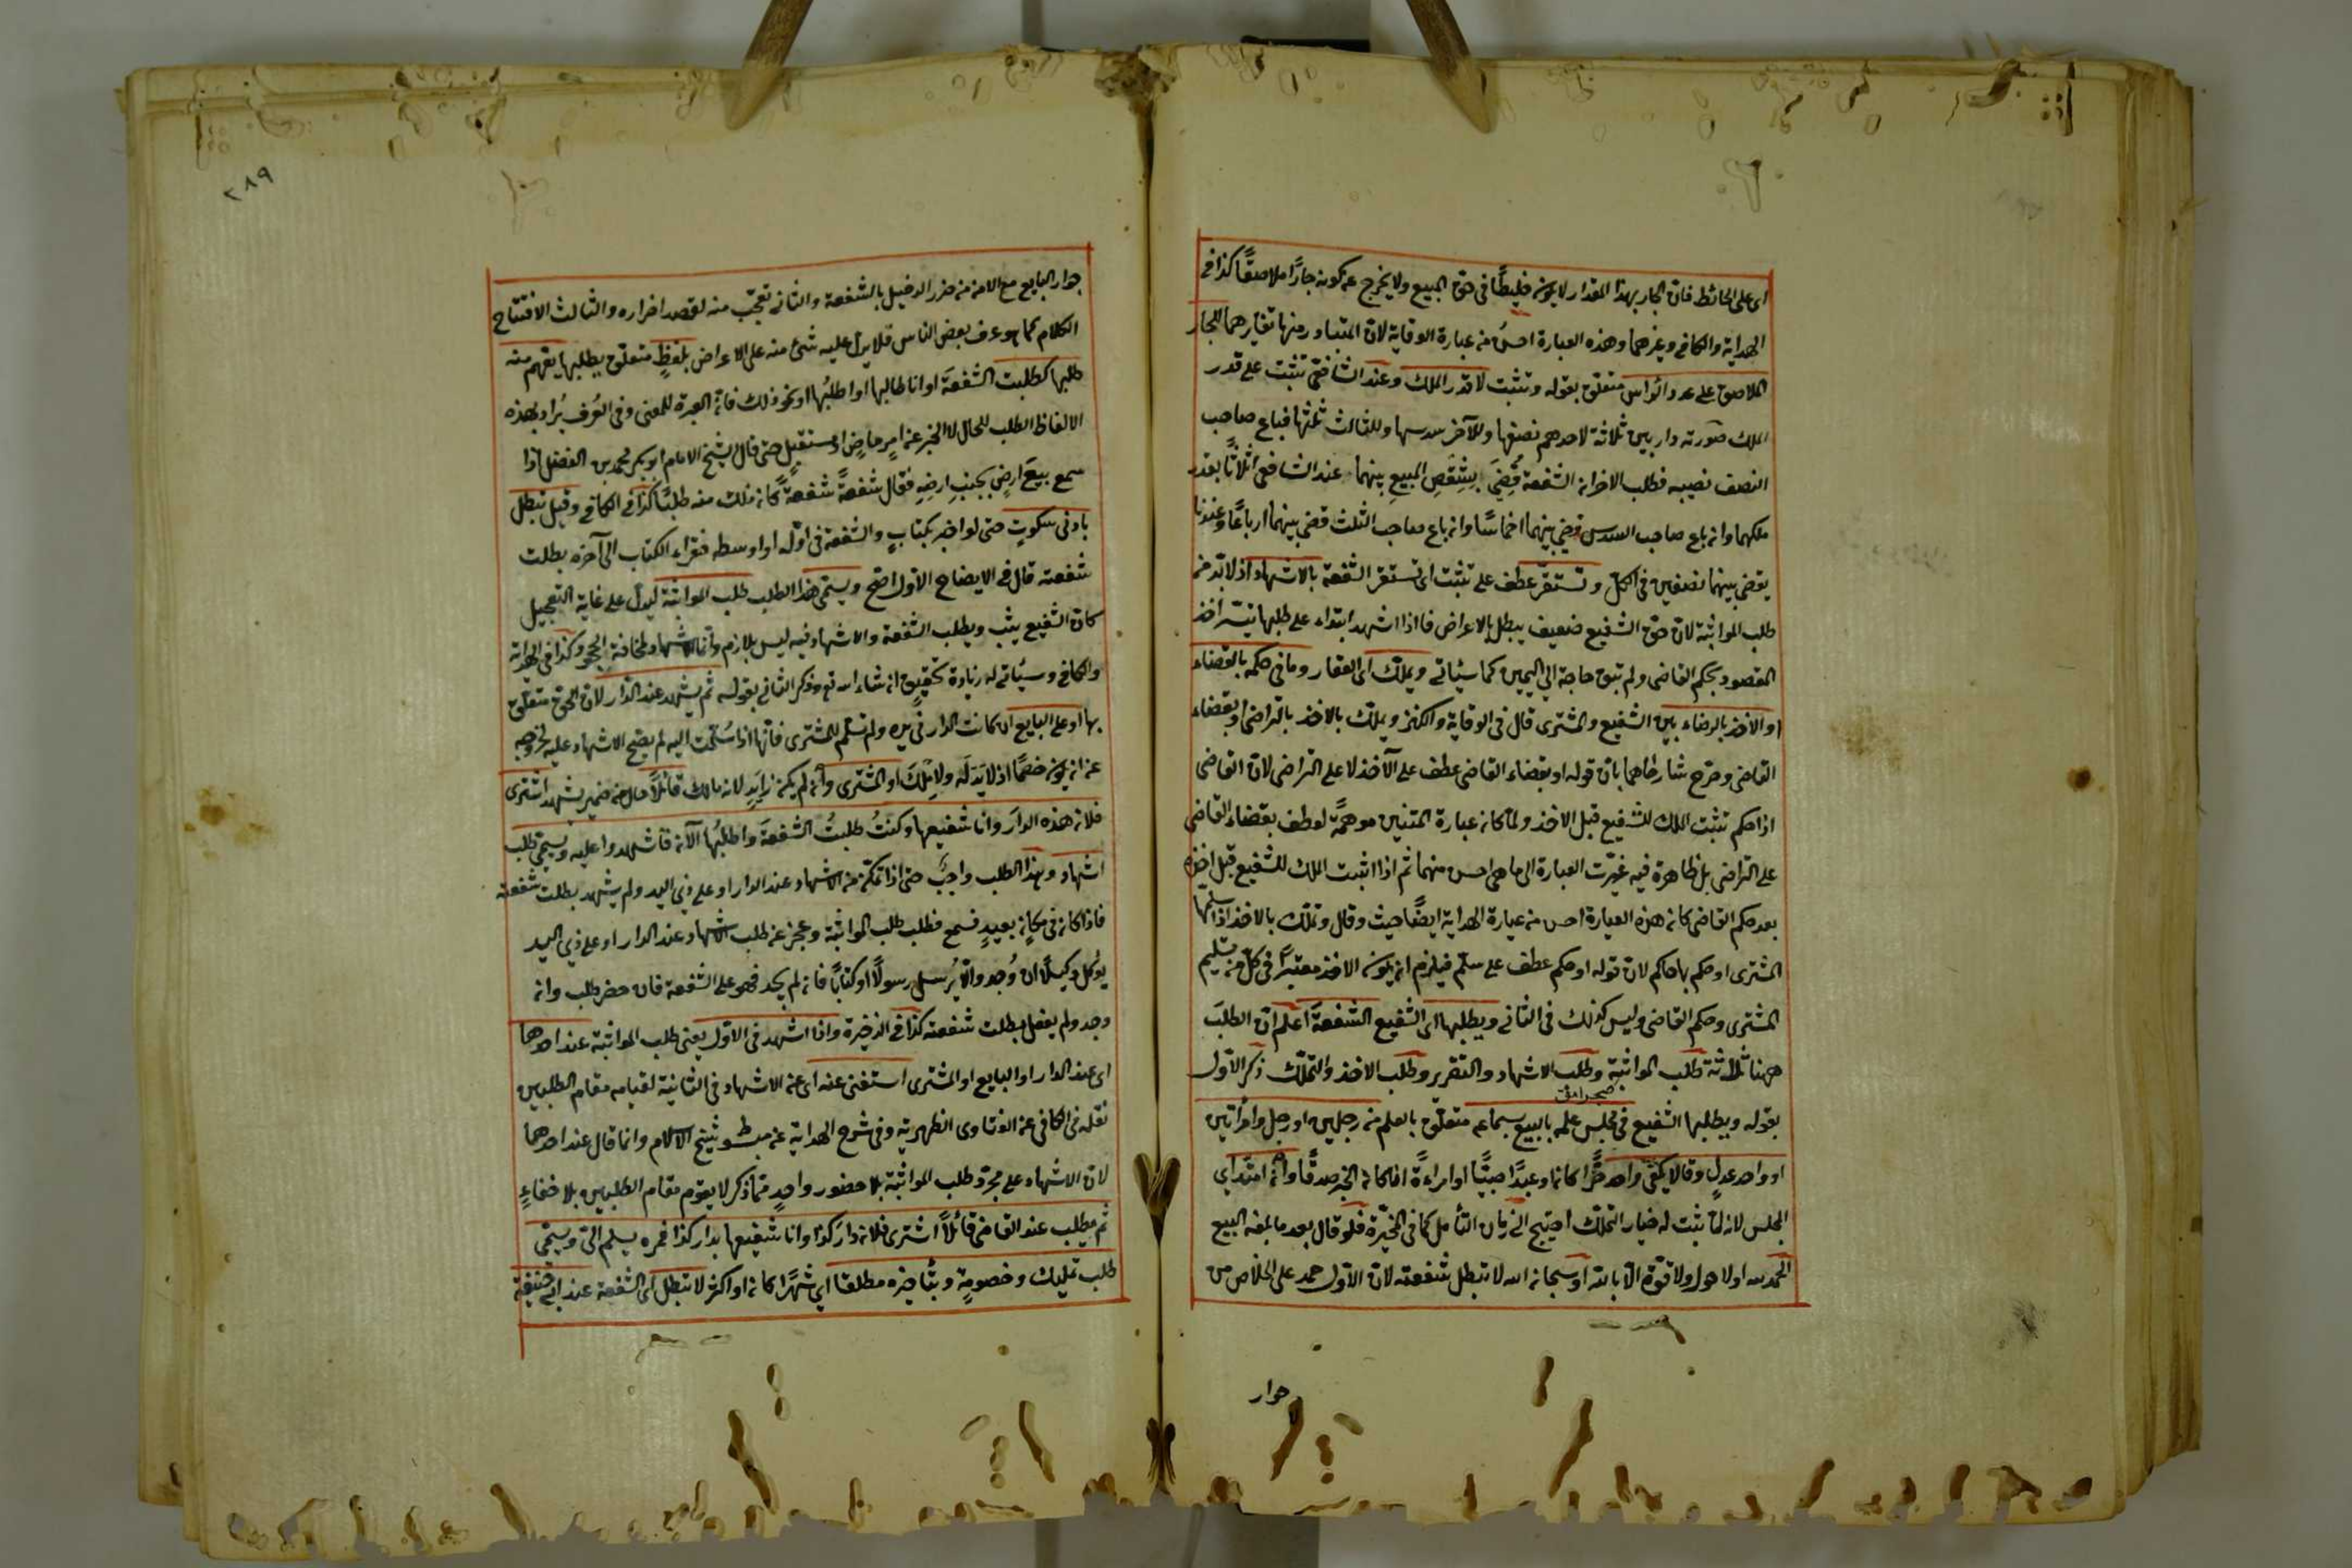 اى على الحائط فان الجار بهذا المقدار لا يكون خليطًا فى حق المبيع ولا يخرج عن كونه جارًا ملاصقًا كذا فى
الهداية والكافى وغيرهما وهذه العبارة احسن من عبارة الوقاية لان المتبادر منها تغايرهما للجار
الملاصق على عدد الرؤس متعلق بقوله وتثبت لا قدر الملك وعند الشافعى تثبت على قدر
الملك صورته دار بين ثلاثة لاحدهم نصفها وللآخر سدسها وللثالث ثلثها فباع صاحب
النصف نصيبه فطلب الاخران الشفعة قُضِىَ بِشِقْصِ المبيع بينهما عند الشافعى اثلاثًا بقدر
ملكهما وان باع صاحب السدس قضى بينهما اخماسًا وان باع صاحب الثلث قضى بينهما ارباعًا وعندنا
يقضى بينهما نصفين فى الكل وتستقر عطف على تثبت اى تستقر الشفعة بالاشهاد اذ لا بد من
طلب المواثبة لان حق الشفيع ضعيف يبطل بالاعراض فاذا اشهد ابتداء على طلبها تيسر اخذ
المقصود بحكم القاضى ولم تبق حاجة الى اليمين كما سيأتى ويملك اى العقار وما فى حكمه بالقضاء
او الاخذ بالرضاء بين الشفيع والمشترى قال فى الوقاية والكنز ويملك بالاخذ بالتراضى او بقضاء
القاضى وصرح شارحاهما بان قوله او بقضاء القاضى عطف على الاخذ لا على التراضى لان القاضى
اذا حكم تثبت الملك للشفيع قبل الاخذ ولما كان عبارة المتنين موهمة لعطف بقضاء القاضى
على التراضى بل ظاهرة فيه غيّرت العبارة الى ما هى احسن منهما ثم اذا اثبت الملك للشفيع قبل اخذه
بعد حكم القاضى كان هذه العبارة احسن من عبارة الهداية ايضًا حيث وقال وتملك بالاخذ اذا سلمها
المشترى او حكم بها حاكم لان قوله او حكم عطف على سلّم فيلزم ان يكون الاخذ معتبرًا فى كل من تسليم
المشترى وحكم القاضى وليس كذلك فى الثانى ويطلبها اى الشفيع الشفعة اعلم ان الطلب
ههنا ثلاثة طلب المواثبة وطلب الاشهاد والتقرير وطلب الاخذ والتملك ذكر الاول
بقوله ويطلبها الشفيع فى مجلس علمه بالبيع بسماعه متعلق بالعلم من رجلين او رجل وامرأتين
او واحد عدل وقالا يكفى واحد حرًا كان او عبدًا صبيًا او امراءة اذا كان الخبر صدقًا وان امتد اى
المجلس لانه لما ثبت له خيار التملك احتيج الى زمان التأمل كما فى المخيّرة فلو قال بعد ما بلغه البيع
الحمد لله او لا حول ولا قوّة الا بالله او سبحان الله لا تبطل شفعته لان الاول حمد على الخلاص من
جوار
٢٨٩
جوار البايع مع الامن من ضرر الدخيل بالشفعة والثانى تعجّب منه لقصد اضراره والثالث الافتتاح
الكلام كما هو عرف بعض الناس فلا يدل عليه شئ منه على الاعراض بلفظٍ متعلق بيطلبها يفهم منه
طلبها كطلبت الشفعةَ او انا طالبها او اطلبُها او نحو ذلك فان العبرة للمعنى وفى العُرف يُراد بهذه
الالفاظ الطلب للحال لا الخبر عن امرٍ ماضٍ او مستقبلٍ حتى قال الشيخ الامام ابو بكر محمد بن الفضل اذا
سمع بيعَ ارضٍ بجنب ارضِه فقال شفعةً شفعةً كان ذلك منه طلبًا كذا فى الكافى وقيل تبطل
بادنى سكوتٍ حتى لو اخبر بكتابٍ والشفعة فى اوّله او اوسطه فقراء الكتاب الى آخره بطلت
شفعته قال فى الايضاح الاول اصح ويسمّى هذا الطلب طلب المواثبة ليدل على غاية التعجيل
كان الشفيع يثب ويطلب الشفعة والاشهاد فيه ليس بلازم وانما الاشهاد مخافة الجحود كذا فى الهداية
والكافى وسيأتى له زيادة تحقيق ان شاء الله تع وذكر الثانى بقوله ثم يشهد عند الدار لان الحق متعلّق
بها او على البايع ان كانت الدار فى يده ولم تسلّم للمشترى فانها اذا سُلّمت اليه لم يصح الاشهاد عليه لخروجه
عن ان يكون خصمًا اذ لا يَدَ له ولا مِلكَ او المشترى وان لم يكن ذا يدٍ لانه مالك قائلًا حال من ضمير يشهد اشترى
فلان هذه الدارَ وانا شفيعها وكنتُ طلبتُ الشفعةَ واطلبُها الآن فاشهدوا عليه ويسمى طلب
اشهاد وهذا الطلب واجبٌ حتى اذا تمكّن من الاشهاد عند الدار او على ذى اليد ولم يشهد بطلت شفعته
فاذا كان فى مكانٍ بعيدٍ فسمع فطلب طلب المواثبة وعجز عن طلب الاشهاد عند الدار او على ذى اليد
يوكل وكيلًا ان وُجد والا يُرسل رسولًا او كتابًا فان لم يجد فهو على الشفعة فان حضر طلب وان
وجد ولم يفعل بطلت شفعته كذا فى الذخيرة واذا اشهد فى الاول يعنى طلب المواثبة عند احدهما
اى عند الدار او البايع او المشترى استغنى عنه اى عن الاشهاد فى الثانية لقيامه مقام الطلبين
نقله فى الكافى عن الفتاوى الظهيرية وفى شرح الهداية عن مبسوط شيخ الاسلام وانما قال عند احدهما
لان الاشهاد على مجرّد طلب المواثبة بلا حضور واحدٍ ممّا ذكر لا يقوم مقام الطلبين بلا خفاءٍ
ثم يطلب عند القاضى قائلًا اشترى فلان دارَ كذا وانا شفيعها بدار كذا فمره يسلم الىّ ويسمّى
طلب تمليك وخصومةٍ وبتأخيره مطلقا اى شهرًا كان او اكثر لا تبطل اى الشفعة عند ابى حنيفة